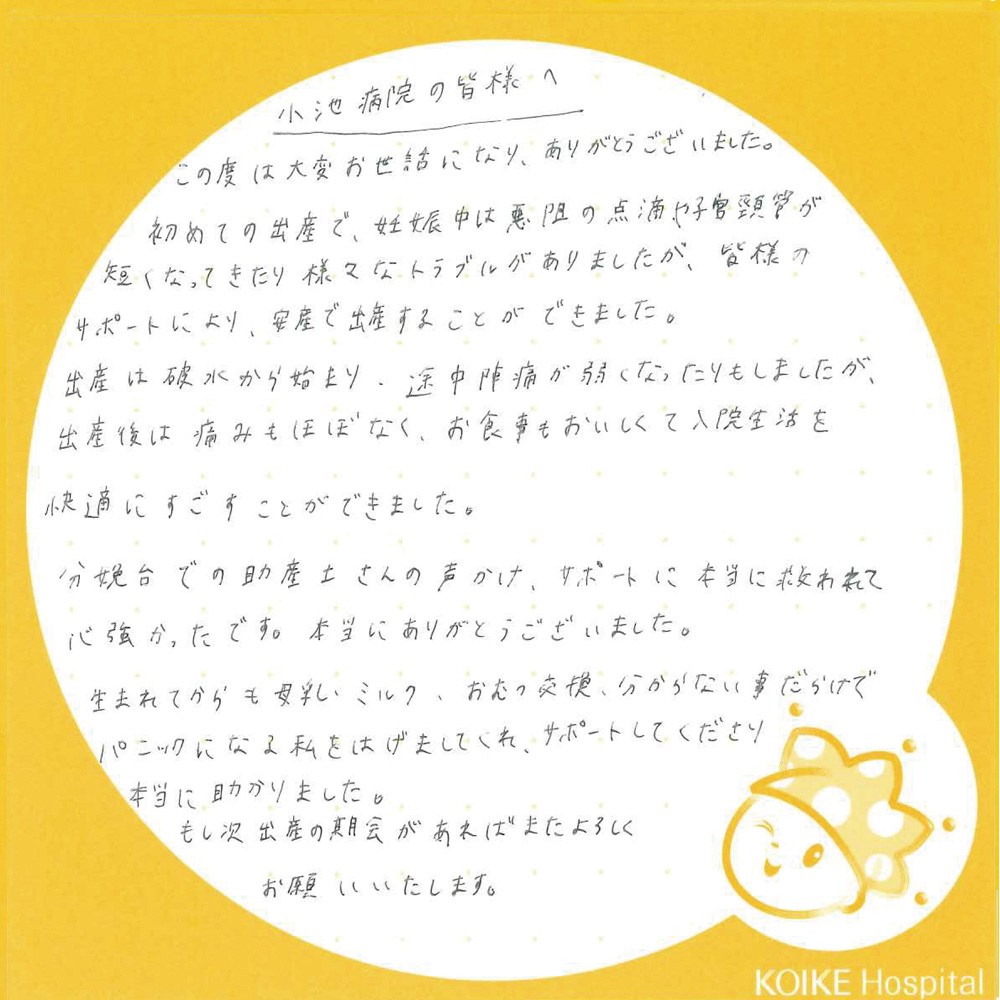 小池病院の皆様へ
この度は大変お世話になり、ありがとうございました。
初めての出産で、妊娠中は悪阻の点滴や子宮頸管が
短くなってきたり様々なトラブルがありましたが、皆様の
サポートにより、安産で出産することができました。
出産は破水から始まり、途中陣痛が弱くなったりもしましたが、
出産後は痛みもほぼなく、お食事もおいしくて入院生活を
快適にすごすことができました。
分娩台での助産士さんの声かけ、サポートに本当に救われて
心強かったです。本当にありがとうございました。
生まれてからも母乳、ミルク、おむつ交換、分からない事だらけで
パニックになる私をはげましてくれ、サポートしてくださり
本当に助かりました。
もし次出産の期会があればまたよろしく
お願いいたします。
KOIKE Hospital